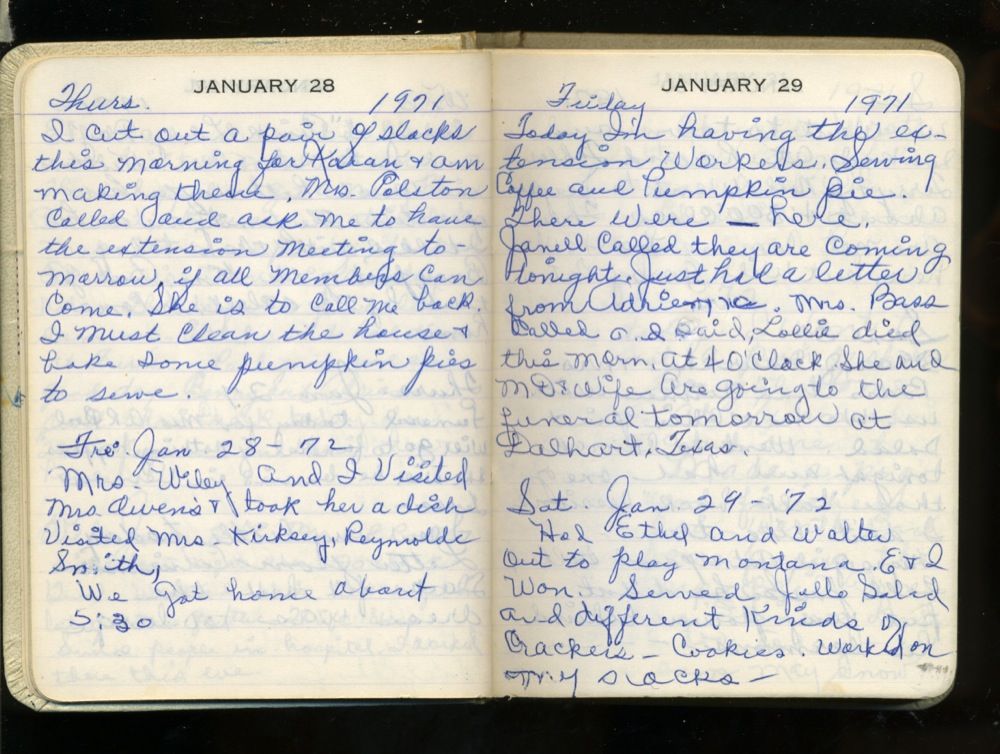 JANUARY 28
Thurs. 1971
I cut out a pair of slacks
this morning for Karan & am
making them. Mrs. Polston
Called and ask me to have
the extension Meeting to-
marrow, if all Members Can
Come. She is to Call me back.
I Must Clean the house &
bake some pumpkin pies
to serve.
Fri Jan 28 - 72
Mrs. Wiley and I Visited
Mrs Owens & took her a dish
Visited Mrs Kirksey, Reynolds
Smith,
We got home about
5:30
JANUARY 29
Friday 1971
Today I'm having the ex-
tension Workers. Serving
Coffee and Pumpkin Pie.
There Were — here.
Janell Called they are Coming
tonight. Just had a letter
from Adrienne. Mrs. Bass
Called and said, Lollie died
this Morn. at 4 O'Clock. She and
M D & Wife Are going to the
funeral tomorrow at
Dalhart, Texas.
Sat. Jan. 29 - '72
Had Ethel and Walter
out to play Montana. E & I
Won. Served Jello Salad
and different Kinds of
Crackers - Cookies. Worked on
my slacks —